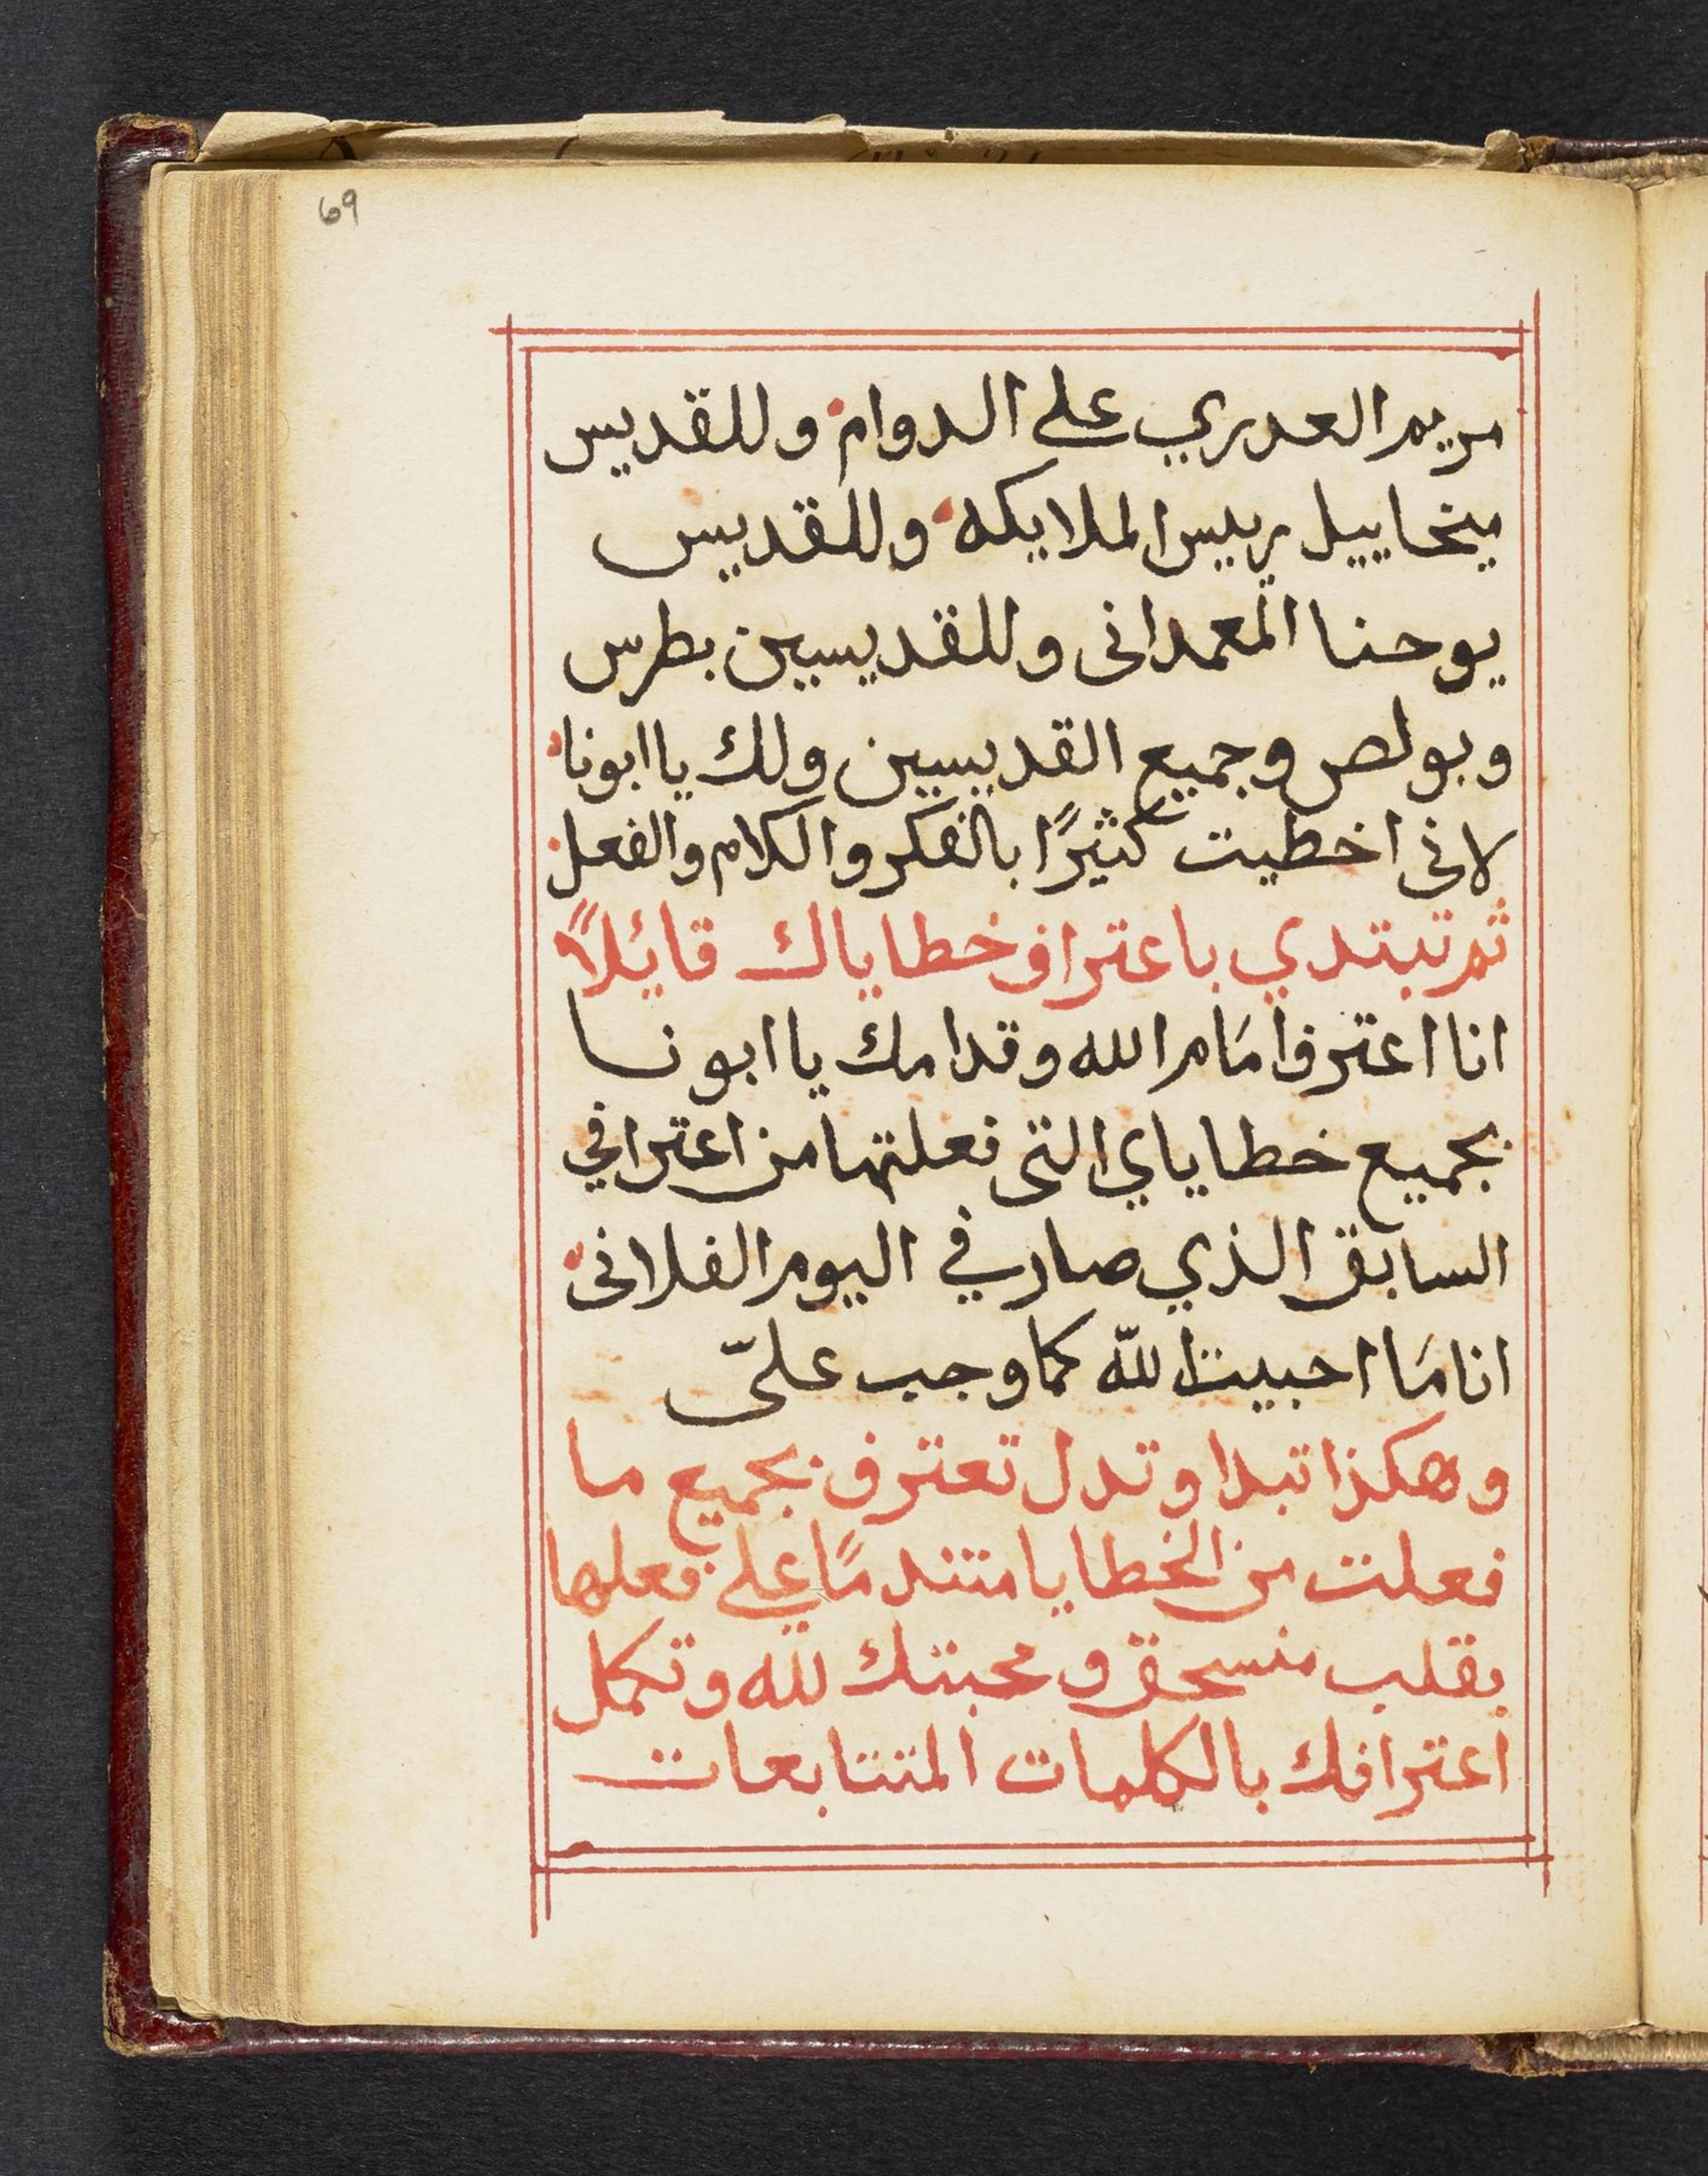 69
مريم العدري علي الدوام وللقديس
ميخاييل ريس الملايكه وللقديس
يوحنا المعمدانى وللقديسين بطرس
وبولص وجميع القديسين ولك يا ابونا
لانى اخطيت كثيرًا بالفكر والكلام والفعل
ثم تبتدي باعتراف خطاياك قائلاً
انا اعترف امَام الله وقدامك يا ابونا
بجميع خطاياي التى فعلتها من اعترافي
السابق الذي صار في اليوم الفلانى
انا مَا احبيت اللّه كما وجب عليّ
وهكذا تبدا وتدل تعترف بجميع ما
فعلت من الخطايا متندمًا علي فعلها
بقلب منسحق ومحبتك لله وتكمل
اعترافك بالكلمات المتتابعات